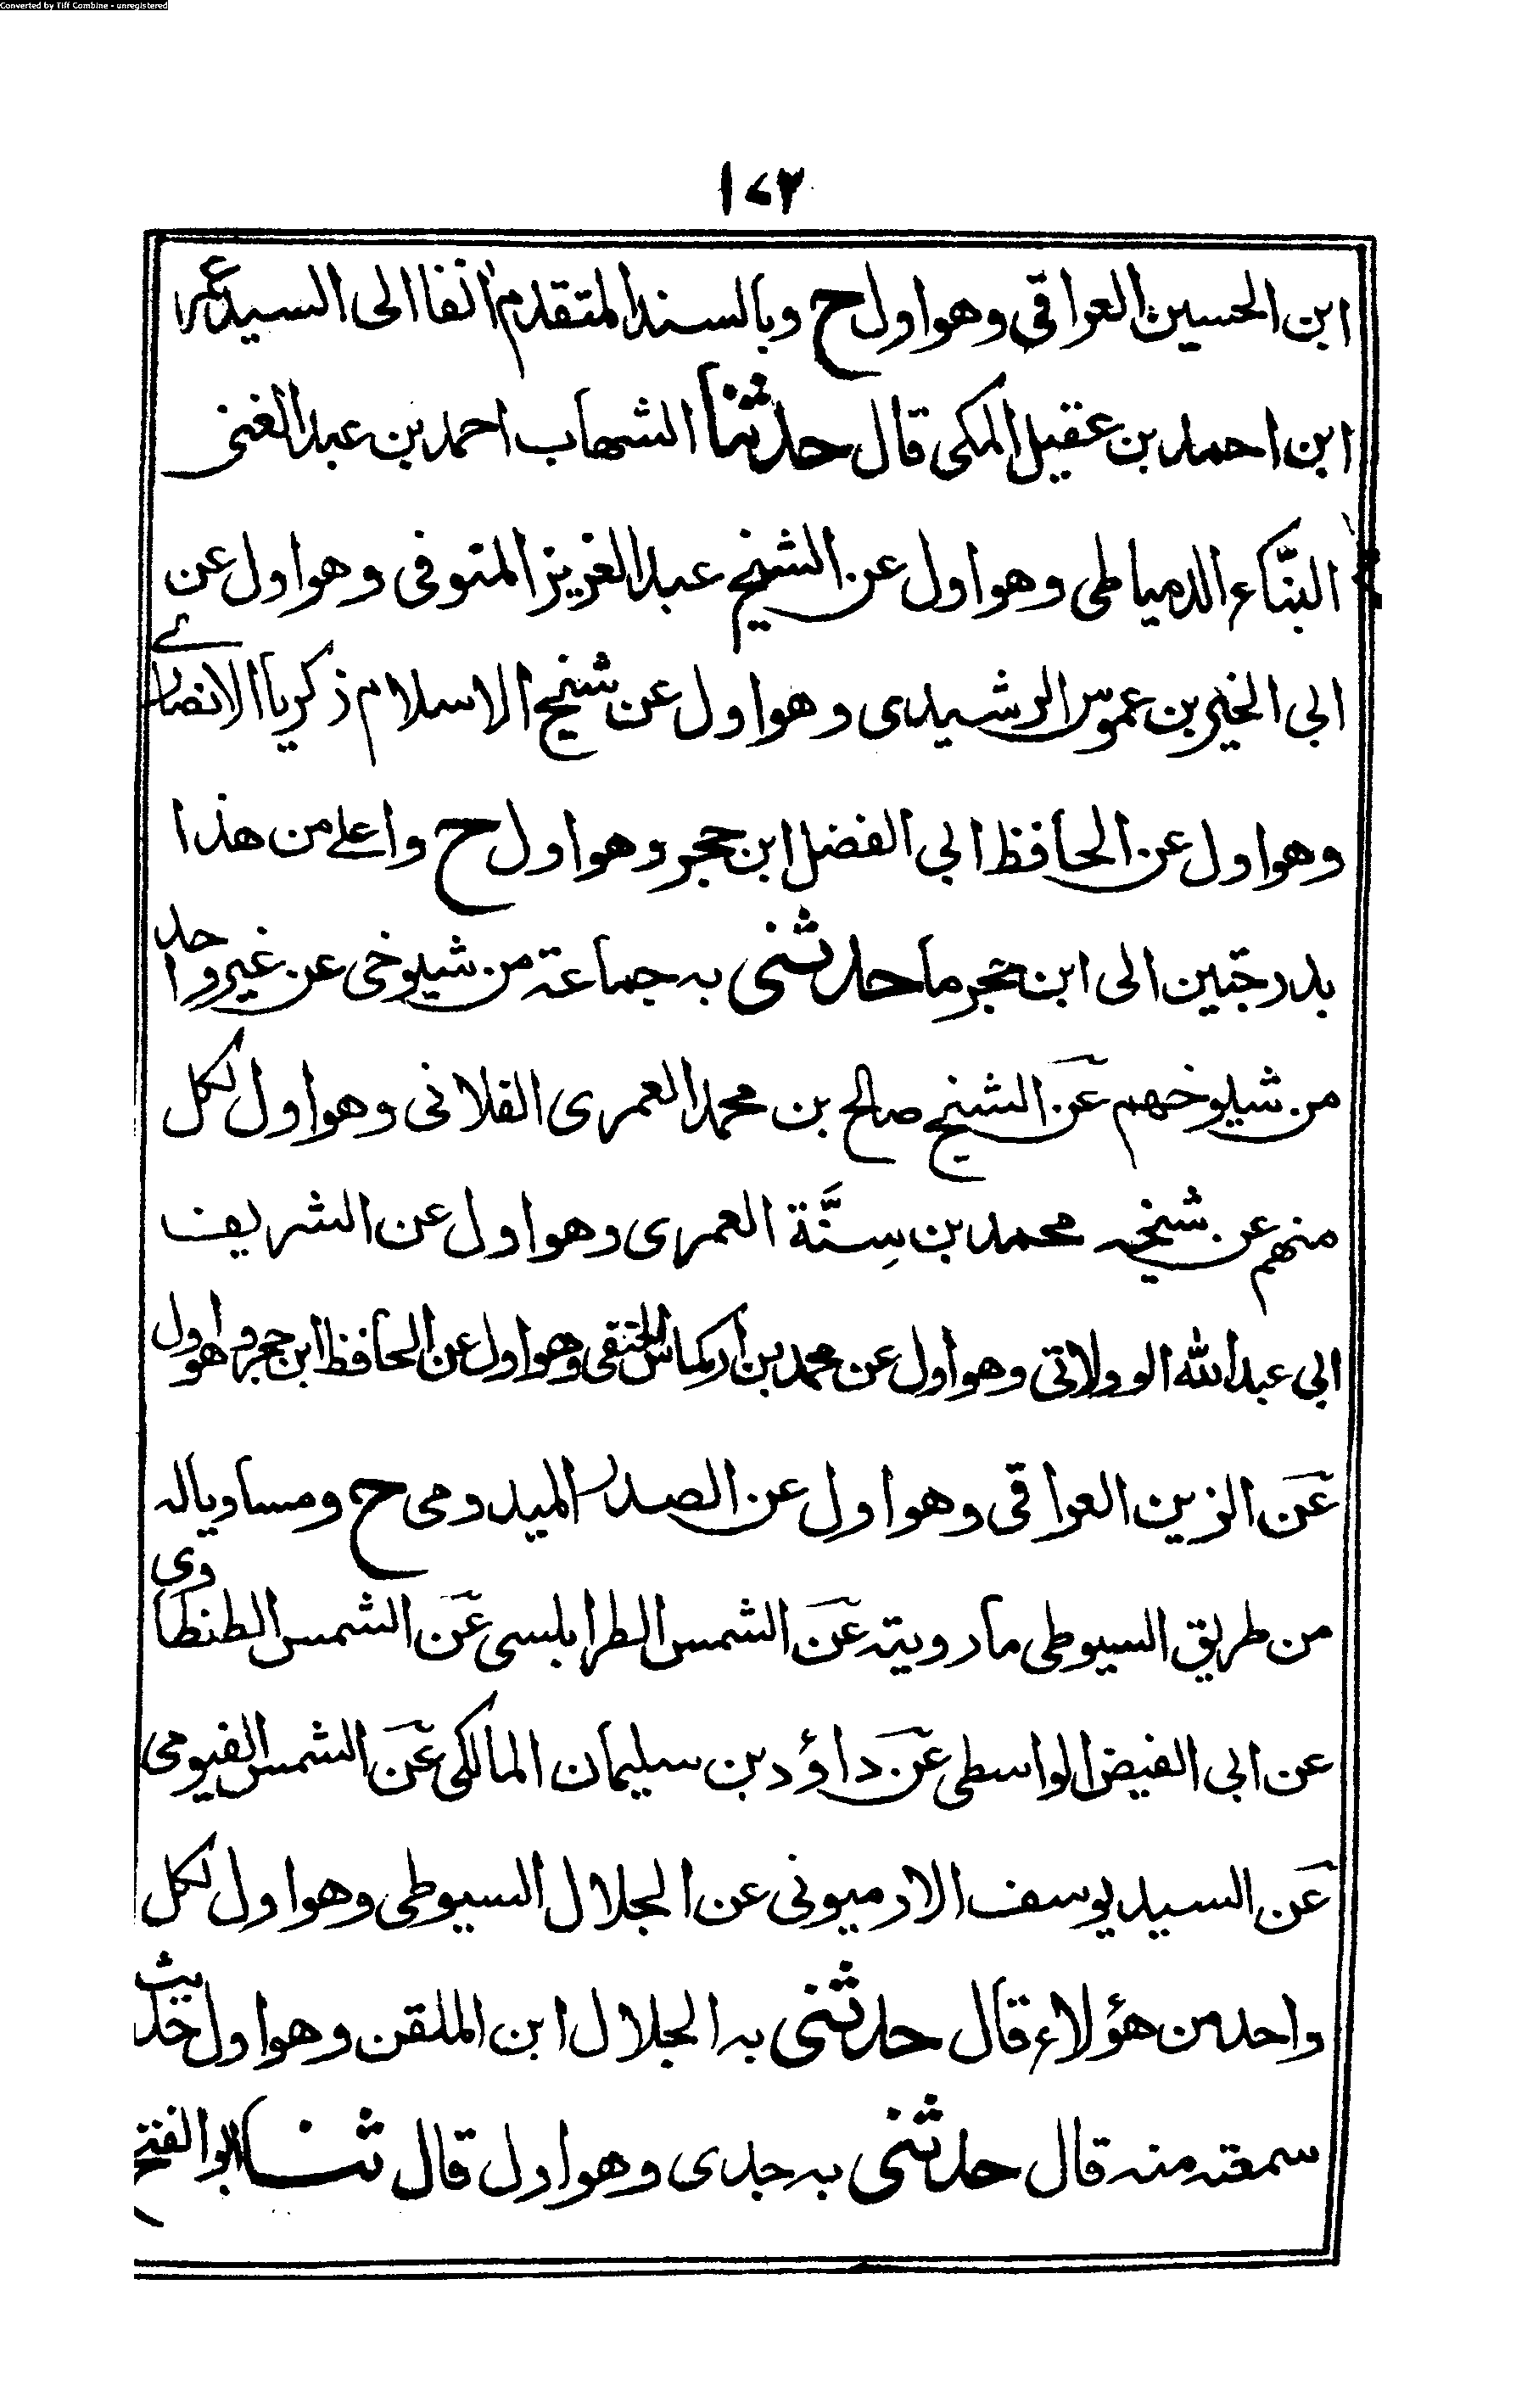 Converted by Tiff Combine - unregistered
١٧٢
ابن الحسين العراقي وهو اول ح وبالسند المتقدم انفا الى السيد عمر
ابن احمد بن عقيل المكى قال حدثنا الشهاب احمد بن عبد الغنى
البنّاء الدمياطى وهو اول عن الشيخ عبد العزيز المتوفى وهو اول عن
ابى الخير بن عموس الرشيدى وهو اول عن شيخ الاسلام زكريا الانصارے
وهو اول عن الحافظ ابى الفضل ابن حجر وهو اول ح واعلى من هذا
بدرجتين الى ابن حجر ما حدثنى به جماعة من شيوخى عن غير واحد
من شيوخهم عن الشيخ صالح بن محمد العمرى الفلانى وهو اول لكل
منهم عن شيخه محمد بن سِنَّة العمرى وهو اول عن الشريف
ابى عبد الله الوولاتى وهو اول عن محمد بن اركماس الحنفى وهو اول عن الحافظ ابن حجر وهو اول
عن الزين العراقى وهو اول عن الصدر الميدومى ح ومساويا له
من طريق السيوطى ما رويته عن الشمس الطرابلسى عن الشمس الطنطاوى
عن ابى الفيض الواسطى عن داؤد بن سليمان المالكى عن الشمس الفيومى
عن السيد يوسف الارميونى عن الجلال السيوطى وهو اول لكل
واحد من هؤلاء قال حدثنى به الجلال ابن الملقن وهو اول حديث
سمعته منه قال حدثنى به جدى وهو اول قال ثنا ابو الفتح